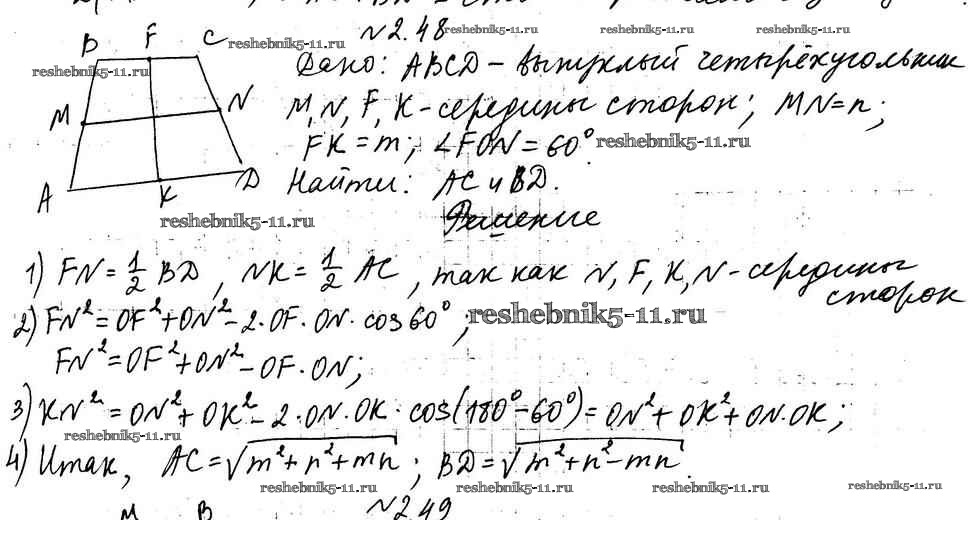 №2.48
B F C
M N
A K D
Дано: ABCD – выпуклый четырёхугольник
M, N, F, K – середины сторон; MN = n;
FK = m; ∠FON = 60°.
Найти: AC и BD.
Решение
1) FN = 1/2 BD, NK = 1/2 AC, так как N, F, K, N – середины
сторон
2) FN² = OF² + ON² – 2·OF·ON·cos60°;
FN² = OF² + ON² – OF·ON;
3) KN² = ON² + OK² – 2·ON·OK·cos(180° – 60°) = ON² + OK² + ON·OK;
4) Итак, AC = √(m² + n² + mn); BD = √(m² + n² – mn).
M B №2.49
reshebnik5-11.ru
reshebnik5-11.ru
reshebnik5-11.ru
reshebnik5-11.ru
reshebnik5-11.ru
reshebnik5-11.ru
reshebnik5-11.ru
reshebnik5-11.ru
reshebnik5-11.ru
reshebnik5-11.ru
reshebnik5-11.ru
reshebnik5-11.ru
reshebnik5-11.ru